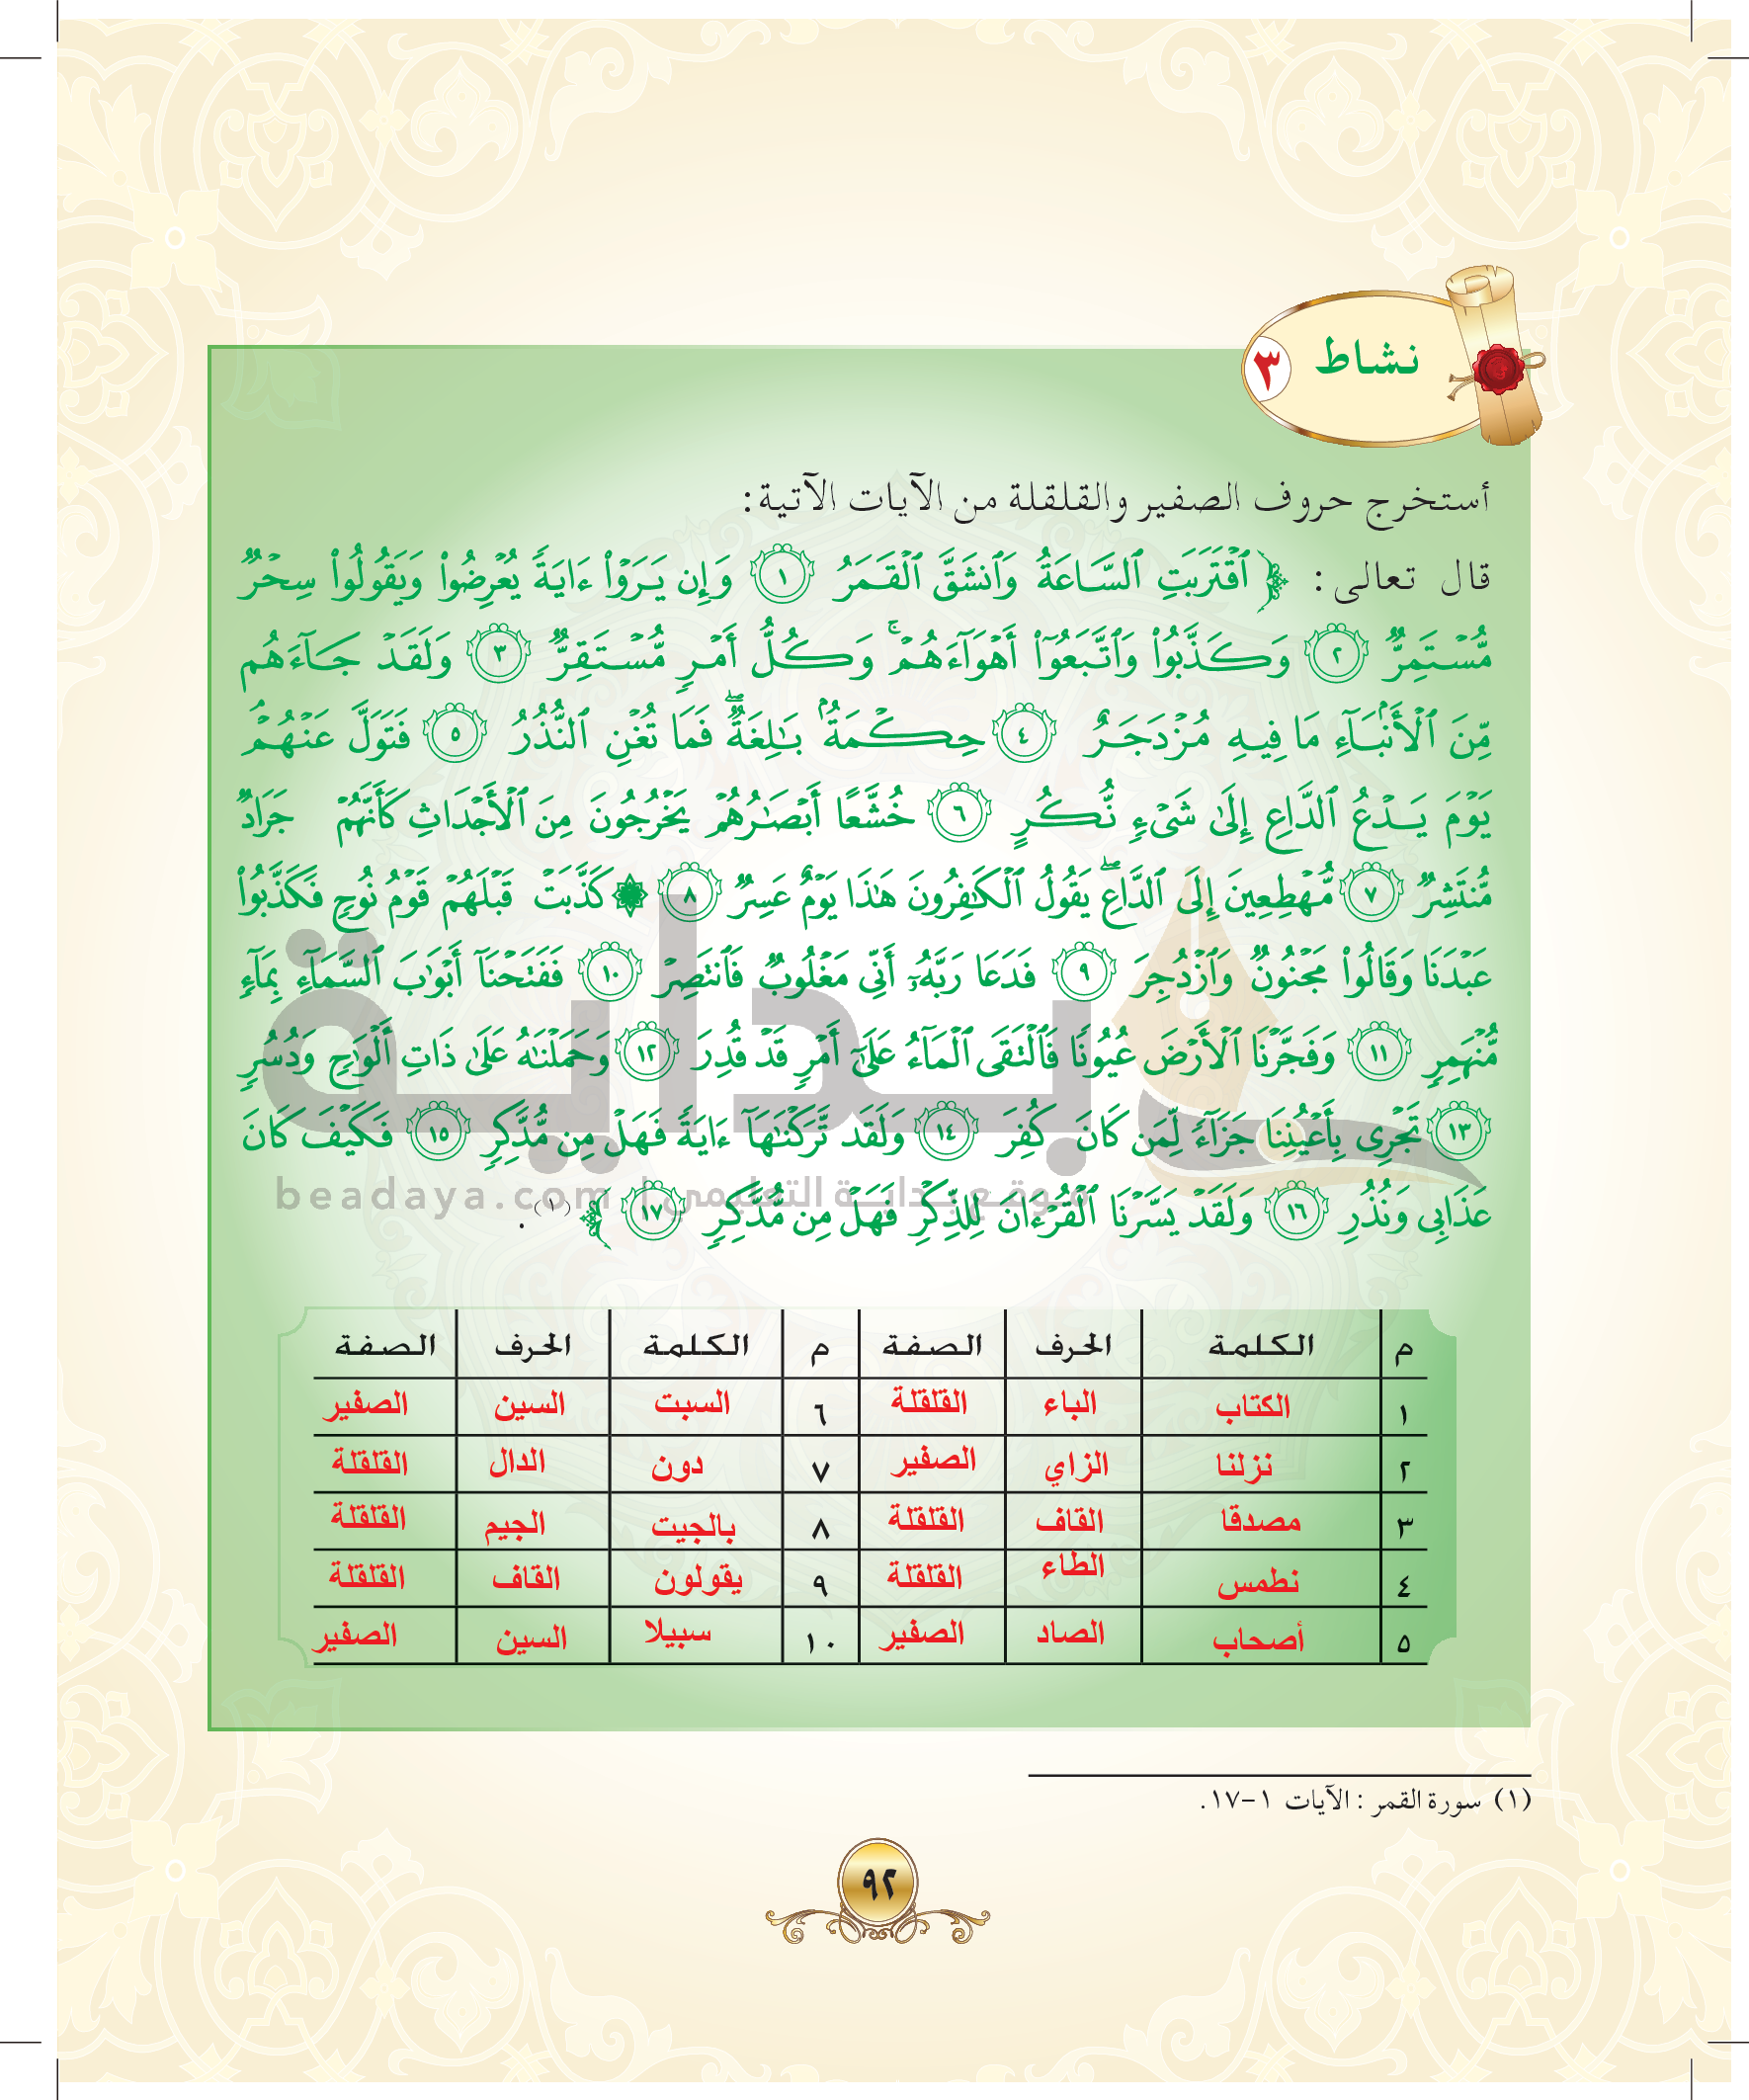 نشاط ٣
أستخرج حروف الصفير والقلقلة من الآيات الآتية:
قال تعالى: ﴿ ٱقْتَرَبَتِ ٱلسَّاعَةُ وَٱنشَقَّ ٱلْقَمَرُ ١ وَإِن يَرَوْا۟ ءَايَةً يُعْرِضُوا۟ وَيَقُولُوا۟ سِحْرٌ
مُّسْتَمِرٌّ ٢ وَكَذَّبُوا۟ وَٱتَّبَعُوٓا۟ أَهْوَآءَهُمْ ۚ وَكُلُّ أَمْرٍ مُّسْتَقِرٌّ ٣ وَلَقَدْ جَآءَهُم
مِّنَ ٱلْأَنۢبَآءِ مَا فِيهِ مُزْدَجَرٌ ٤ حِكْمَةٌۢ بَٰلِغَةٌ ۖ فَمَا تُغْنِ ٱلنُّذُرُ ٥ فَتَوَلَّ عَنْهُمْ ۘ
يَوْمَ يَدْعُ ٱلدَّاعِ إِلَىٰ شَىْءٍ نُّكُرٍ ٦ خُشَّعًا أَبْصَٰرُهُمْ يَخْرُجُونَ مِنَ ٱلْأَجْدَاثِ كَأَنَّهُمْ جَرَادٌ
مُّنتَشِرٌ ٧ مُّهْطِعِينَ إِلَى ٱلدَّاعِ ۖ يَقُولُ ٱلْكَٰفِرُونَ هَٰذَا يَوْمٌ عَسِرٌ ٨ ۞ كَذَّبَتْ قَبْلَهُمْ قَوْمُ نُوحٍ فَكَذَّبُوا۟
عَبْدَنَا وَقَالُوا۟ مَجْنُونٌ وَٱزْدُجِرَ ٩ فَدَعَا رَبَّهُۥٓ أَنِّى مَغْلُوبٌ فَٱنتَصِرْ ١٠ فَفَتَحْنَآ أَبْوَٰبَ ٱلسَّمَآءِ بِمَآءٍ
مُّنْهَمِرٍ ١١ وَفَجَّرْنَا ٱلْأَرْضَ عُيُونًا فَٱلْتَقَى ٱلْمَآءُ عَلَىٰٓ أَمْرٍ قَدْ قُدِرَ ١٢ وَحَمَلْنَٰهُ عَلَىٰ ذَاتِ أَلْوَٰحٍ وَدُسُرٍ
١٣ تَجْرِى بِأَعْيُنِنَا جَزَآءً لِّمَن كَانَ كُفِرَ ١٤ وَلَقَد تَّرَكْنَٰهَآ ءَايَةً فَهَلْ مِن مُّدَّكِرٍ ١٥ فَكَيْفَ كَانَ
عَذَابِى وَنُذُرِ ١٦ وَلَقَدْ يَسَّرْنَا ٱلْقُرْءَانَ لِلذِّكْرِ فَهَلْ مِن مُّدَّكِرٍ ١٧ ﴾ (١).
بداية
موقع بداية التعليمي | beadaya.com
م الكلمة الحرف الصفة م الكلمة الحرف الصفة
١ الكتاب الباء القلقلة ٦ السبت السين الصفير
٢ نزلنا الزاي الصفير ٧ دون الدال القلقلة
٣ مصدقا القاف القلقلة ٨ بالجيت الجيم القلقلة
٤ نطمس الطاء القلقلة ٩ يقولون القاف القلقلة
٥ أصحاب الصاد الصفير ١٠ سبيلا السين الصفير
(١) سورة القمر : الآيات ١-١٧.
٩٢